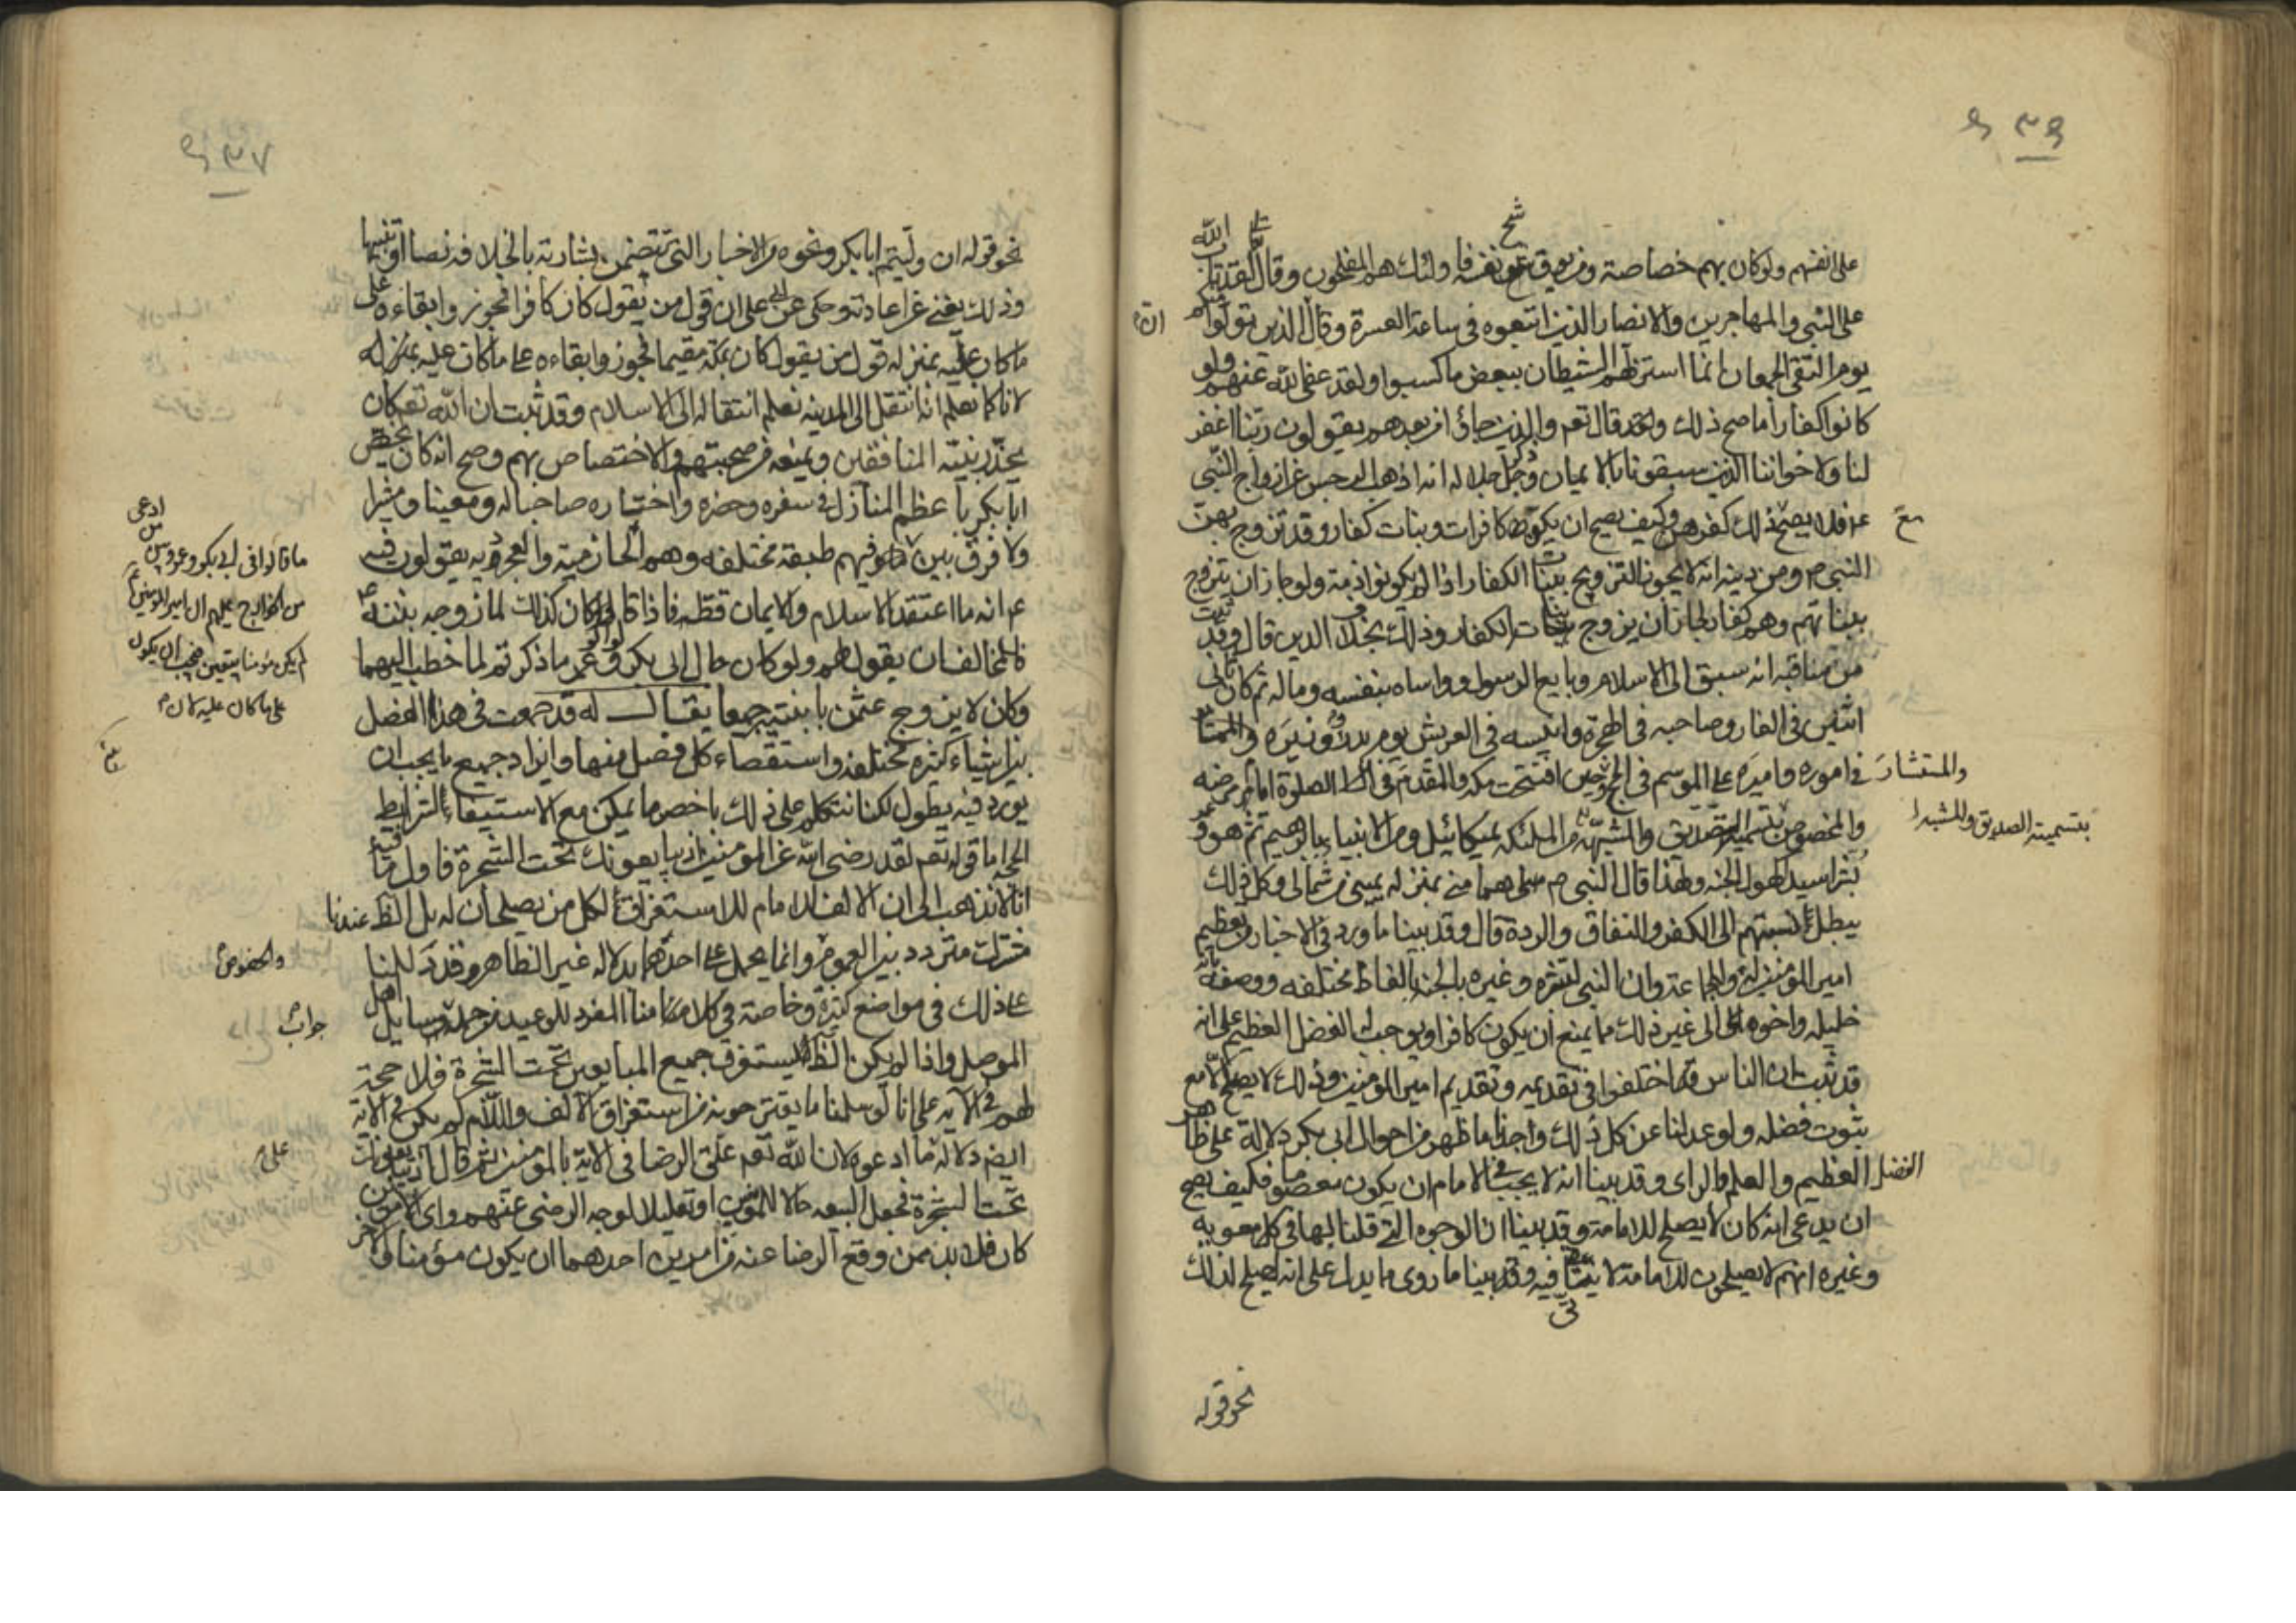 على انفسهم ولو كان بهم خصاصة ومن يوق شح نفسه فاولئك هم المفلحون وقال تعالى لقد تاب الله
على النبي والمهاجرين والانصار الذين اتبعوه في ساعة العسرة وقال ان الذين تولوا منكم
يوم التقى الجمعان انما استزلهم الشيطان ببعض ما كسبوا ولقد عفا الله عنهم ولو
كانوا كفارا ما صح ذلك وقد قال تعم والذين جاؤا من بعدهم يقولون ربنا اغفر
لنا ولاخواننا الذين سبقونا بالايمان وذكر جل جلاله انه اذهب الرجس عن ازواج النبي
ع فلا يصح مع ذلك كفرهن وكيف يصح ان يكون كافرات وبنات كفار وقد تزوج بهن
النبي ص ومن دينه انه لا يجوز التزويج ببنات الكفار اذا لم يكونوا ذمة ولو جاز ان يتزوج
ببناتهم وهم كفار لجاز ان يزوج بنات الكفار وذلك بخلاف الدين قال وقد ثبت
من مناقبه انه سبق الى الاسلام وبايع الرسول وواساه بنفسه وماله ثم كان ثاني
اثنين في الغار وصاحبه في الهجرة وانيسه في العريش يوم بدر ووزيره والمستشار
في اموره واميره على الموسم في الحج حين افتتحت مكة والمقدم في الصلوة ايام مرضه
والمخصوص بتسمية الصديق والمشبه من الملئكة بميكائيل ومن الانبياء بابراهيم ثم هو وعمر
بشرا سيدا كهول الجنة ولهذا قال النبي ص هما مني بمنزلة يميني من شمالي وكل ذلك
يبطل نسبتهم الى الكفر والنفاق والردة قال وقد بينا ما ورد في الاخبار من تعظيم
امير المؤمنين له والجماعة وان النبي بشره وغيره بالجنة بالفاظ مختلفة ووصفه بانه
خليله واخوه الى غير ذلك مما يمنع ان يكون كافرا ويوجب له الفضل العظيم على انه
قد ثبت ان الناس قد اختلفوا في تقديمه وتقديم امير المؤمنين وذلك لا يصح الا مع
ثبوت فضله ولو عدلنا عن كل ذلك وجدنا ما ظهر من احوال ابي بكر دلالة على ظاهر
الفضل العظيم والعلم والراي وقد بينا انه لا يجب في الامام ان يكون معصوما فكيف يصح
ان يدعى انه كان لا يصلح للامامة وقد بينا ان الوجوه التي قلنا لها في معوية
وغيره انهم لا يصلحون للامامة لا يتاتى فيه وقد بينا ما روى مما يدل على انه يصلح لذلك
نحو قوله
والمستشار
بتسمية الصديق والمشبه
نحو قوله ان وليتم ابا بكر ونحوه من الاخبار التي تتضمن بشارته بالخلافة نصا او تنبيها
وذلك يغني عن اعادته وحكى عن ابي علي ان قول من يقول كان كافرا فنجوز وابقاءه على
ما كان عليه بمنزلة قول من يقول كان بمكة مقيما فنجوز وابقاءه على ما كان عليه بمنزلة
لانا كما نعلم انه انتقل الى المدينة نعلم انتقاله الى الاسلام وقد ثبت ان الله تعم كان
يحذر نبيه المنافقين ويمنعه من صحبتهم والاختصاص بهم وصح انه كان يختص
ابا بكر باعظم المنازل في سفره وحضره واختياره صاحبا له ومعينا ومشيرا
ولا فرق بين من ادعى ما قالوا في ابي بكر وعمر وبين من
ع انه ما اعتقد الاسلام والايمان قط فاذا قالوا لو كان كذلك لما زوجه بنته
فالمخالف ان يقول لهم ولو كان حال ابي بكر وعمر ما ذكرتم لما خطب اليهما
وكان لا يزوج عثمن بابنتيه جميعا يقال له قد جمعت في هذا الفصل
بين اشياء كثيرة مختلفة واستقصاء كل فصل منها وايراد جميع ما يجب ان
يورد فيه يطول لكنا نتكلم على ذلك باخصر ما يمكن مع الاستيفاء لشرايط
الحجة اما قوله تعم لقد رضي الله عن المؤمنين اذ يبايعونك تحت الشجرة فاول ما فيه
انا لا نذهب الى ان الالف واللام للاستغراق لكل من يصلحان له بل الظ عندنا
مشترك متردد بين العموم والخصوص وانما يحمل على احدهما بدلالة غير الظاهر وقد دللنا
على ذلك في مواضع كثيرة وخاصة في كلامنا المفرد للوعيد من جملة جواب مسايل اهل
الموصل واذا لم يكن الظ يستغرق جميع المبايعين تحت الشجرة فلا حجة
لهم في الاية على انا لو سلمنا ما يقترحونه من استغراق الالف واللام لم يكن في الاية
ايضم دلالة على ما ادعوه لان الله تعم علق الرضا في الاية بالمؤمنين ثم قال اذ يبايعونك
تحت الشجرة فجعل البيعة حالا للمؤمنين او تعليلا لوجه الرضى عنهم واي الامرين
كان فلا بد ممن وقع الرضا عنه من امرين احدهما ان يكون مؤمنا والاخر
ما قالوا في ابي بكر وعمر وبين
من الخوارج عليهم ان امير المؤمنين ع
لم يكن مؤمنا بيقين فيجب ان يكون
على ما كان عليه الان
والخصوص
جواب
على